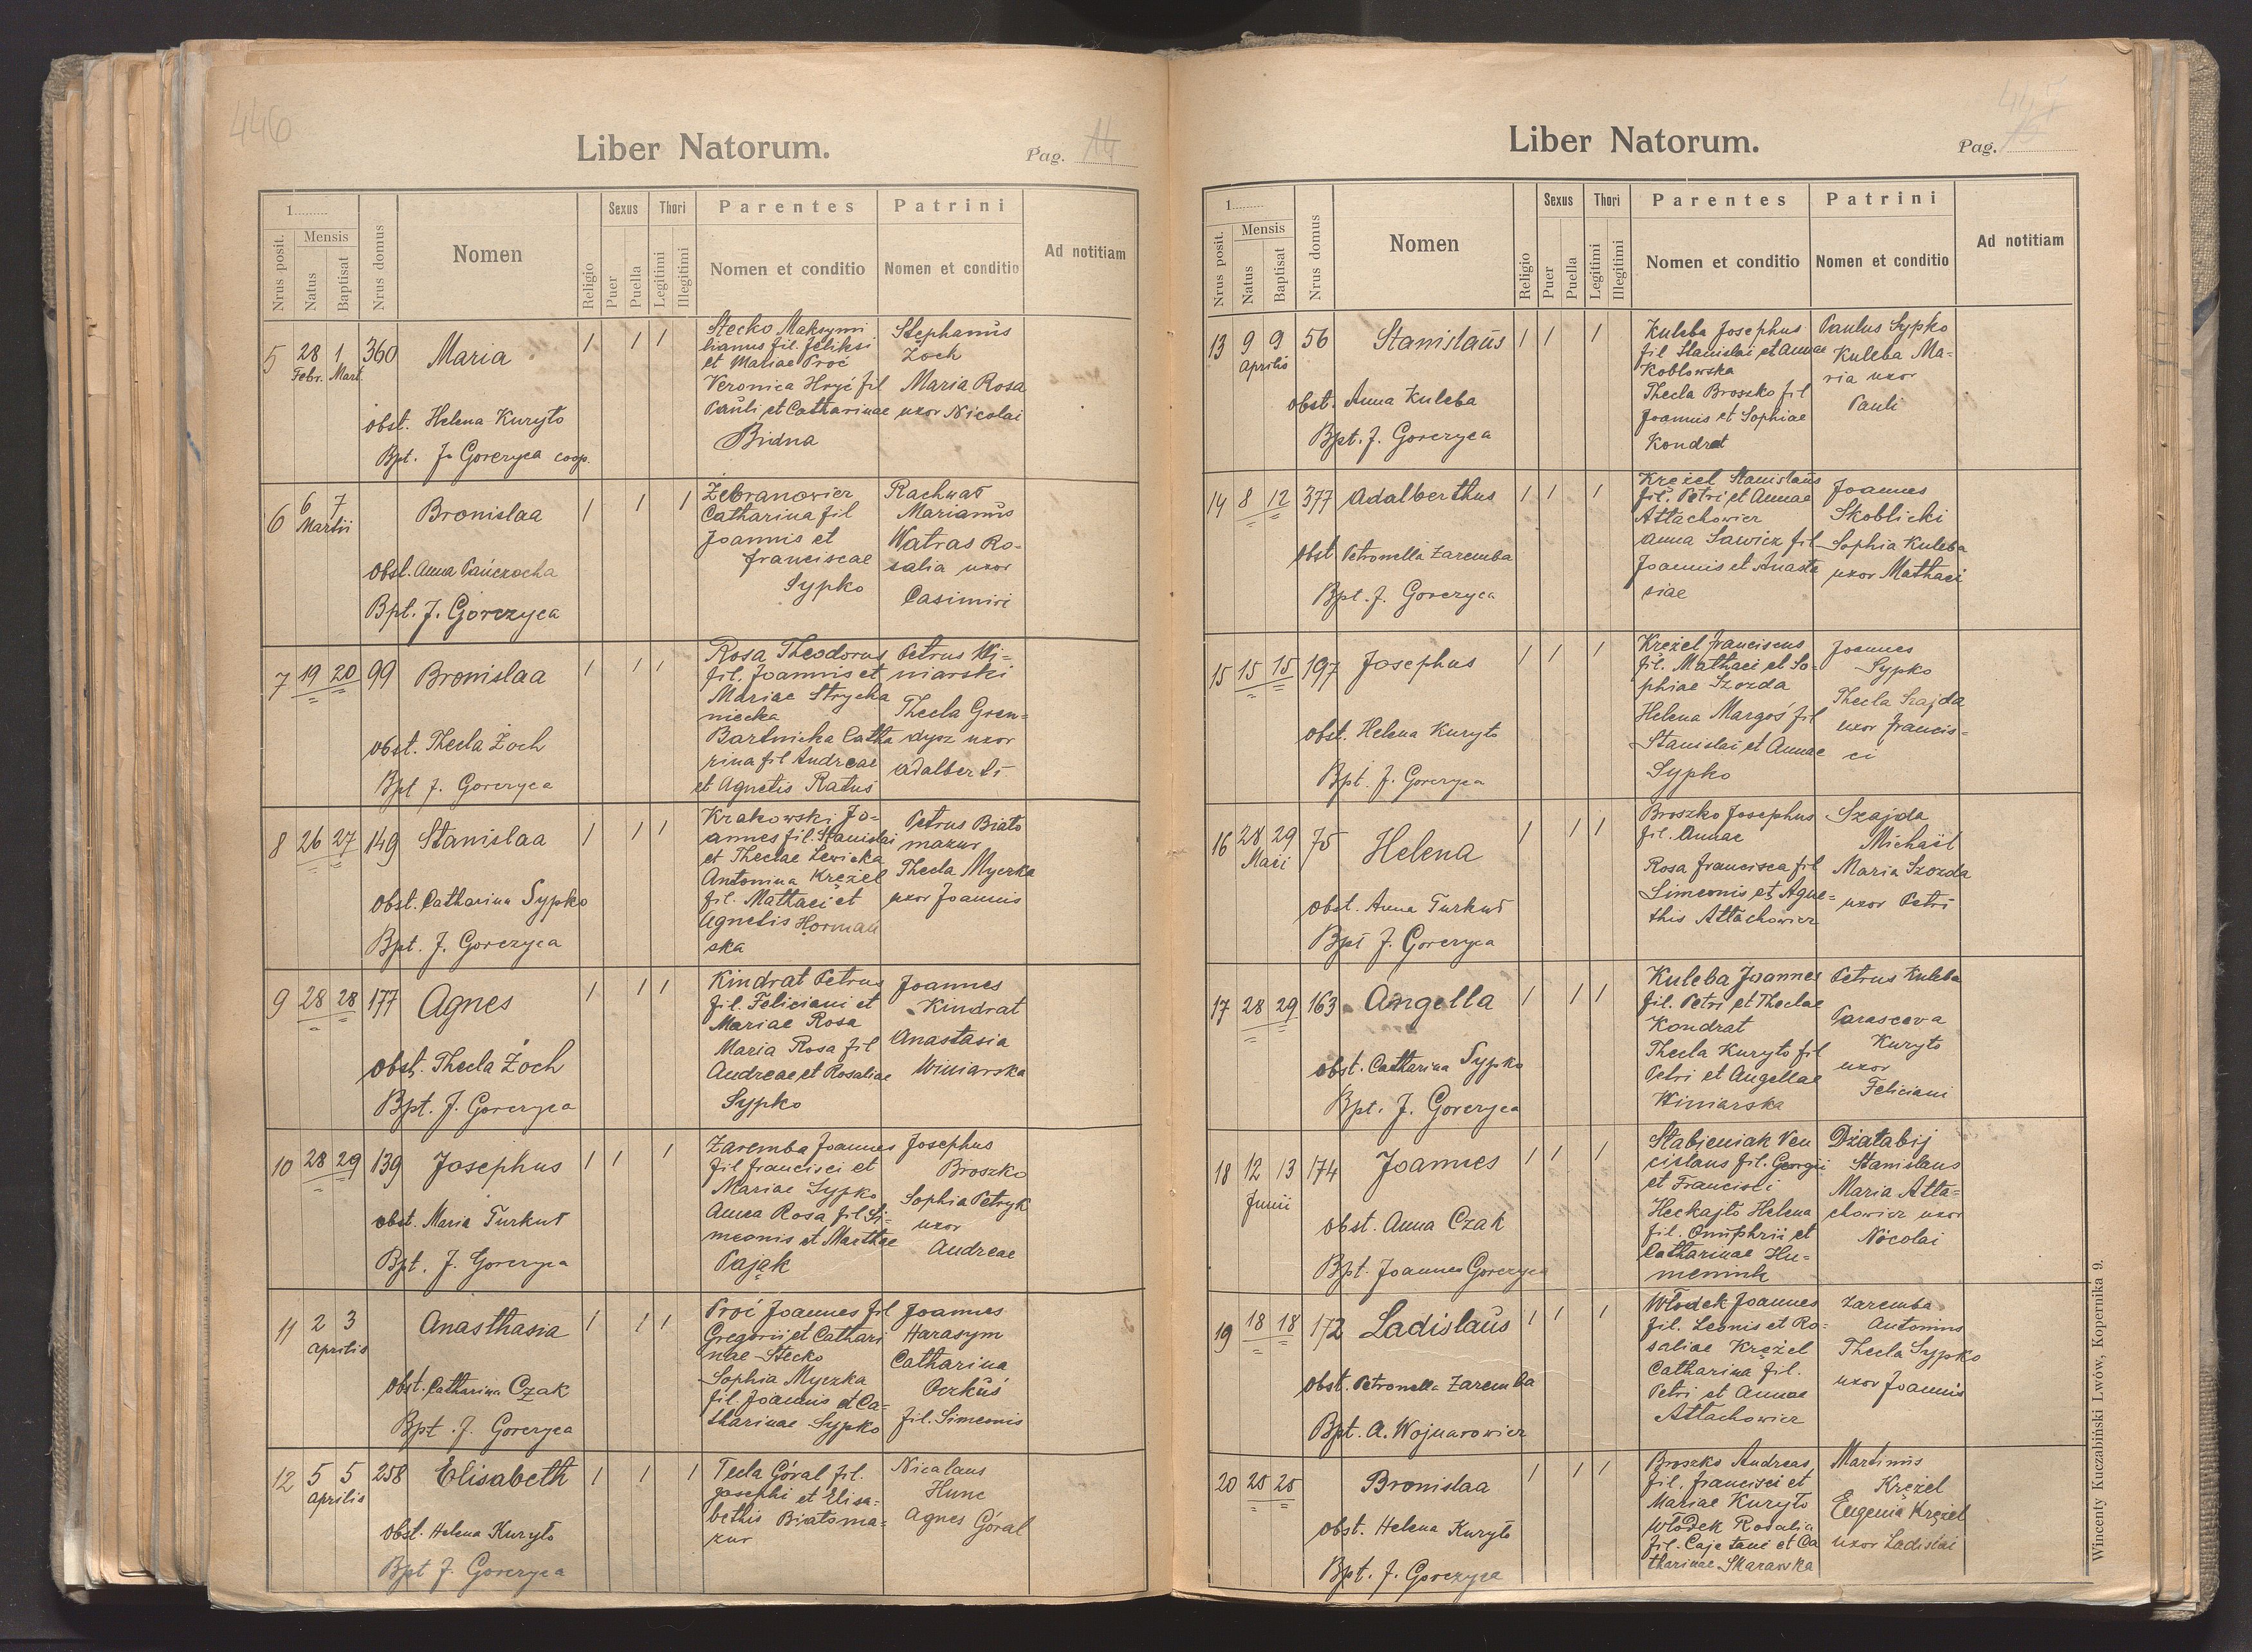 446
Liber Natorum.
Pag. 14
1
Nrus posit.
Mensis
Natus
Baptisat
Nrus domus
Nomen
Religio
Sexus
Puer
Puella
Thori
Legitimi
Illegitimi
Parentes
Nomen et conditio
Patrini
Nomen et conditio
Ad notitiam
5 28 1 360 Maria 1 1 1
Febr. Mart.
obst. Helena Kuryło
Bpt. J. Gorczyca coop.
Stecko Maksymi
lianus fil. Feliksi
et Mariae Proć
Veronica Hryć fil
Pauli et Catharinae
Bidna
Stephanus
Żoch
Maria Rosa
uxor Nicolai
6 6 7 Bronislaa 1 1 1
Martii
Obst. Anna Pańczocha
Bpt. J. Gorczyca
Żebranowicz
Catharina fil
Joannis et
Franciscae
Sypko
Rachwał
Marianus
Watras Ro-
salia uxor
Casimiri
7 19 20 99 Bronislaa 1 1 1
obst. Thecla Żoch
Bpt J. Gorczyca
Rosa Theodorus
fil. Joannis et
Mariae Strycha
niecka
Bartnicka Catha
rina fil Andreae
et Agnetis Ratus
Petrus Wi-
niarski
Thecla Gren-
dysz uxor
Adalberti
8 26 27 149 Stanislaa 1 1 1
obst. Catharina Sypko
Bpt. J. Gorczyca
Krakowski Jo-
annes fil. Stanislai
et Theclae Lewicka
Antonina Krężel
fil. Mathaei et
Agnetis Hormań
ska
Petrus Biało
mazur
Thecla Myczka
uxor Joannis
9 28 28 177 Agnes 1 1 1
obst. Thecla Żoch
Bpt. J. Gorczyca
Kindrat Petrus
fil. Feliciani et
Mariae Rosa
Maria Rosa fil
Andreae et Rosaliae
Sypko
Joannes
Kindrat
Anastasia
Winiarska
10 28 29 139 Josephus 1 1 1
obst. Maria Turkuł
Bpt. J. Gorczyca
Zaremba Joannes
fil Francisci et
Mariae Sypko
Anna Rosa fil Si-
meonis et Marthae
Pająk
Josephus
Broszko
Sophia Petryk
uxor
Andreae
11 2 3 Anasthasia 1 1 1
Aprilis
Obst. Catharina Czak
Bpt. J. Gorczyca
Proć Joannes fil
Gregorii et Cathari
nae Stecko
Sophia Myczka
fil. Joannis et Ca-
tharinae Sypko
Joannes
Harasym
Catharina
Oczkuś
fil. Simeonis
12 5 5 258 Elisabeth 1 1 1
Aprilis
Obst. Helena Kuryło
Bpt J. Gorczyca
Tecla Góral fil.
Josephi et Elisa-
bethis Białoma-
zur
Nicolaus
Hunc
Agnes Góral
Liber Natorum.
Pag.
1
Nrus posit.
Mensis
Natus
Baptisat
Nrus domus
Nomen
Religio
Sexus
Puer
Puella
Thori
Legitimi
Illegitimi
Parentes
Nomen et conditio
Patrini
Nomen et conditio
Ad notitiam
13 9 9 56 Stanislaus 1 1 1
Aprilis
obst. Anna Kuleba
Bpt. J. Gorczyca
Kuleba Josephus
fil Stanislai et Annae
Kobłowska
Thecla Broszko fil
Joannis et Sophiae
Kondrat
Paulus Sypko
Kuleba Ma-
ria uxor
Pauli
14 8 12 377 Adalberthus 1 1 1
obst Petronella Zaremba
Bpt. J. Gorczyca
Krężel Stanislaus
fil. Petri et Annae
Attachowicz
Anna Sawicz fil
Joannis et Anasta
siae
Joannes
Skoblicki
Sophia Kuleba
uxor Mathaei
15 15 15 197 Josephus 1 1 1
obst. Helena Kuryło
Bpt. J. Gorczyca
Krężel Franciscus
fil. Mathaei et So-
phiae Szozda
Helena Margoś fil
Stanislai et Annae
Sypko
Joannes
Sypko
Thecla Szajda
uxor Francis-
ci
16 28 29 75 Helena 1 1 1
Maii
obst. Anna Turkuł
Bpt J. Gorczyca
Broszko Josephus
fil. Annae
Rosa Francisca fil
Simeonis et Agne-
this Attachowicz
Szajda
Michaël
Maria Szozda
uxor Petri
17 28 29 163 Angella 1 1 1
obst. Catharina Sypko
Bpt. J. Gorczyca
Kuleba Joannes
fil. Petri et Theclae
Kondrat
Thecla Kuryło fil
Petri et Angellae
Winiarska
Petrus Kuleba
Parasceva
Kuryło
uxor
Feliciani
18 12 13 174 Joannes 1 1 1
Junii
obst. Anna Czak
Bpt. Joannes Gorczyca
Stabieniak Ven
cislaus fil. Georgii
et Francisci
Heckajło Helena
fil. Onuphrii et
Catharinae Hu-
meniuk
Działabij
Stanislaus
Maria Atta-
chowicz uxor
Nicolai
19 18 18 172 Ladislaus 1 1 1
obst. Petronella Zaremba
Bpt. A. Wojnarowicz
Włodek Joannes
fil. Leonis et Ro-
saliae Krężel
Catharina fil.
Petri et Annae
Attachowicz
Zaremba
Antonius
Thecla Sypko
uxor Joannis
20 25 25 Bronislaa 1 1 1
obst. Helena Kuryło
Bpt. J. Gorczyca
Broszko Andreas
fil. Francisci et
Mariae Kuryło
Włodek Rosalia
fil. Cajetani et Ca
tharinae Skarawska
Martinus
Krężel
Eugenia Krężel
uxor Ladislai
Wincenty Kuczabiński Lwów, Kopernika 9.